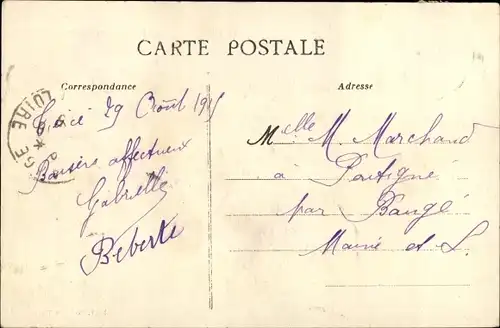 CARTE POSTALE
Correspondance
Adresse
29 Août 19
Baisers affectueux
Gabrielle
Beberte
Melle M. Marchand
à Pontigné
par Baugé
Maine et L.
LOIRE